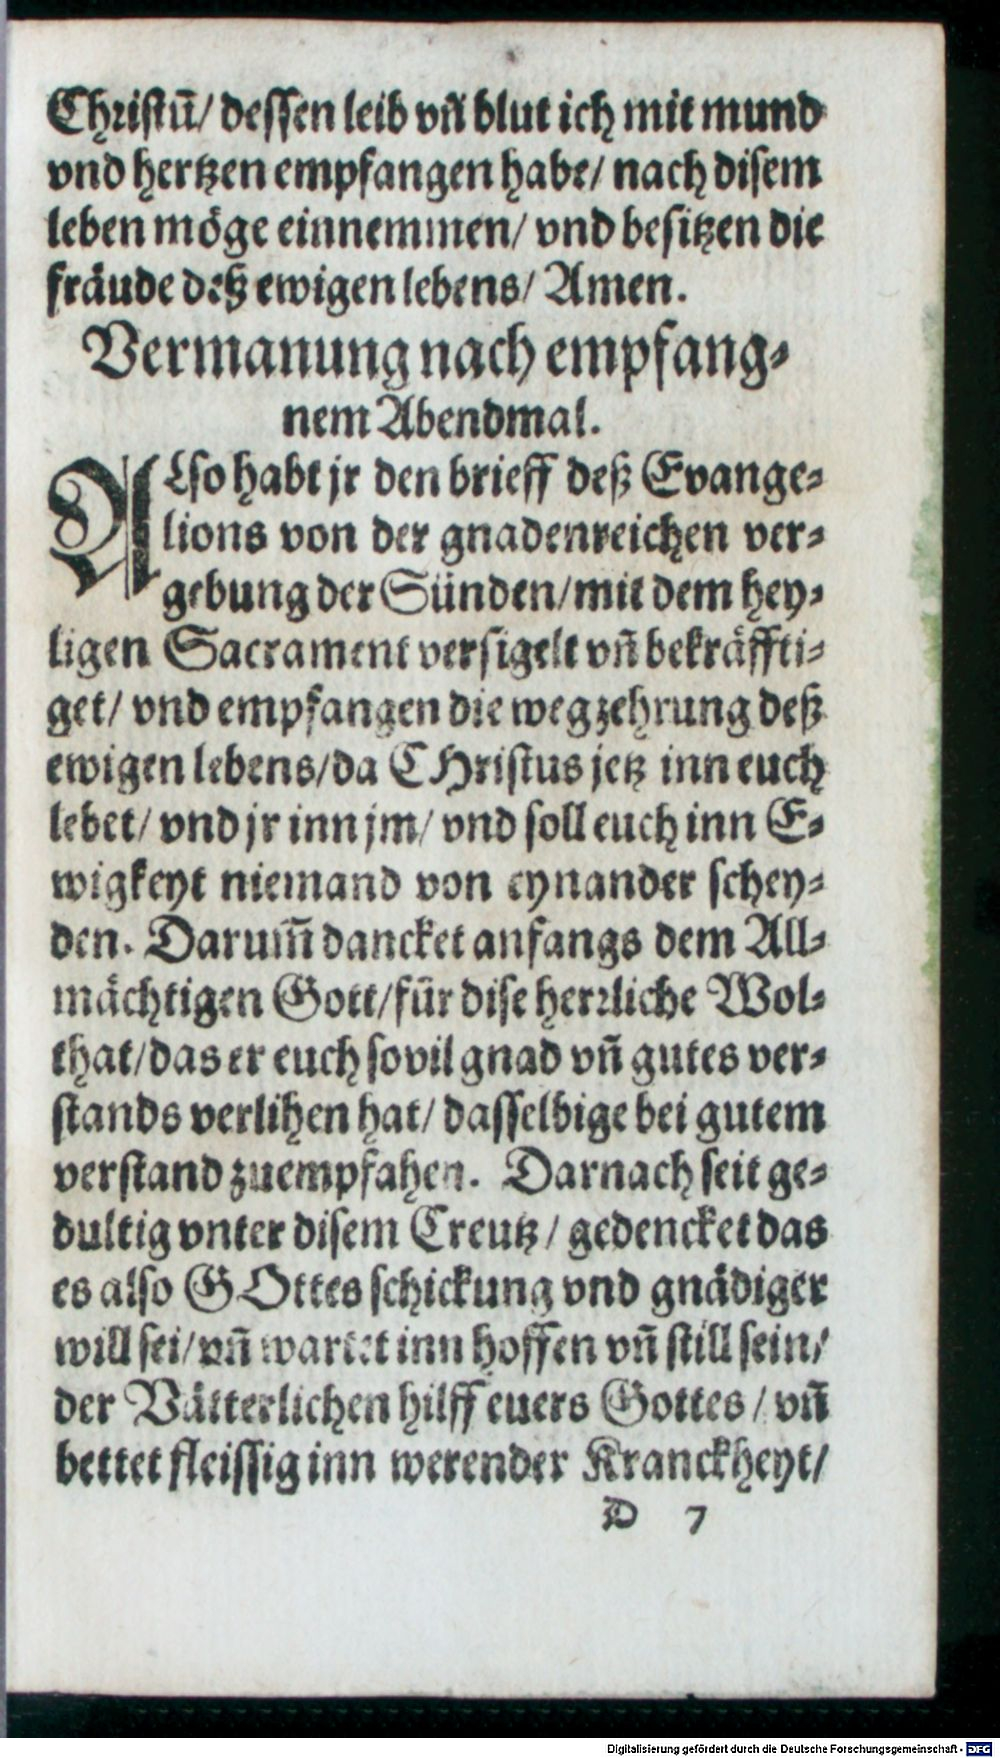 Christū/ dessen leib vñ blut ich mit mund
vnd hertzen empfangen habe/ nach disem
leben möge einnemmen/ vnd besitzen die
fräude deß ewigen lebens/ Amen.
Vermanung nach empfang⸗
nem Abendmal.
ALso habt jr den brieff deß Evange⸗
lions von der gnadenreichen ver⸗
gebung der Sünden/mit dem hey⸗
ligen Sacrament versigelt vñ bekräffti⸗
get/ vnd empfangen die wegzehrung deß
ewigen lebens/da CHristus jetz inn euch
lebet/ vnd jr inn jm/ vnd soll euch inn E⸗
wigkeyt niemand von eynander schey⸗
den. Darum̃ dancket anfangs dem All⸗
mächtigen Gott/für dise herꝛliche Wol⸗
that/das er euch sovil gnad vñ gutes ver⸗
stands verlihen hat/ dasselbige bei gutem
verstand zuempfahen. Darnach seit ge⸗
dultig vnter disem Creutz/ gedencket das
es also GOttes schickung vnd gnädiger
will sei/vñ wartet inn hoffen vñ still sein/
der Vätterlichen hilff euers Gottes/ vñ
bettet fleissig inn werender Kranckheyt/
D 7
Digitalisierung gefördert durch die Deutsche Forschungsgemeinschaft - DFG